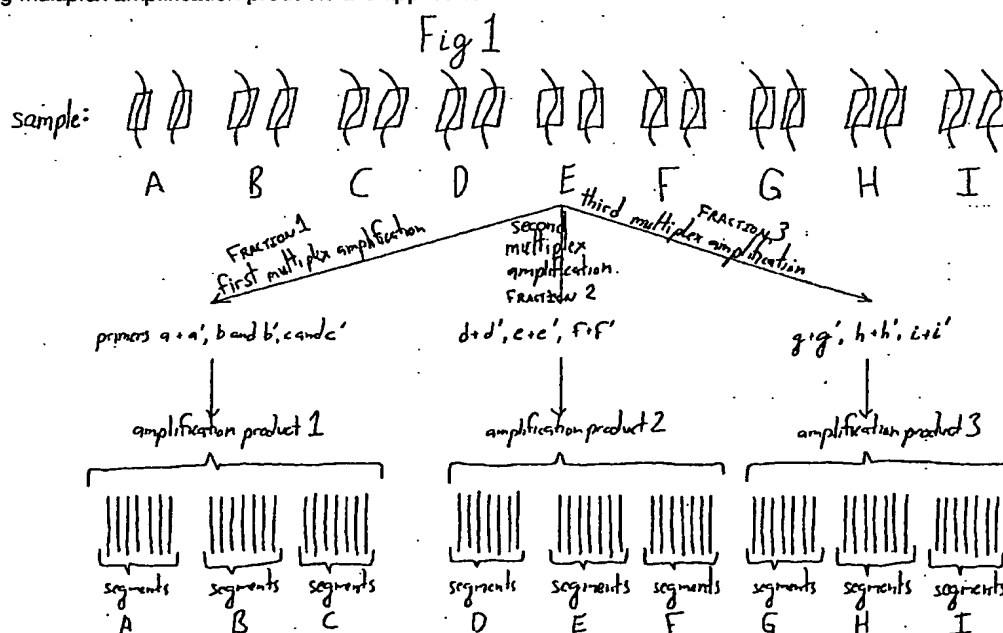 g multiplex amplification product
Fig 1
sample:
A B C D E F G H I
FRACTION 1
first multiplex amplification
second
multiplex
amplification.
FRACTION 2
FRACTION 3
third multiplex amplification
primers a+a', b and b', c and c'
d+d', e+e', f+f'
g+g', h+h', i+i'
amplification product 1
amplification product 2
amplification product 3
segments segments segments segments segments segments segments segments segments
A B C D E F G H I